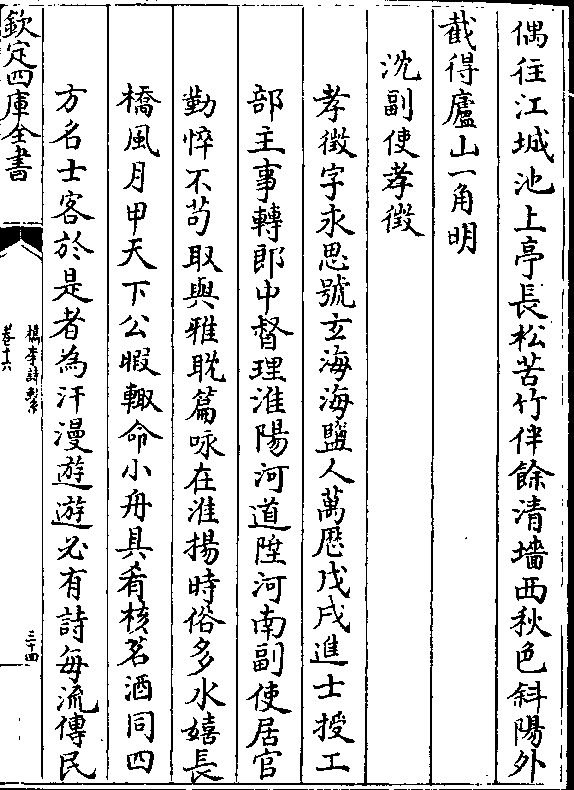 偶往江城池上亭長松苦竹伴餘清墻西秋色斜陽外
截得廬山一角明
沈副使孝徴
孝徴字永思號玄海海鹽人萬厯戊戌進士授工
部主事轉郎中督理淮陽河道陞河南副使居官
勤悴不茍取與雅耽篇咏在淮揚時俗多水嬉長
橋風月甲天下公暇輙命小舟具肴核茗酒同四
方名士客於是者為汗漫遊遊必有詩每流傳民
欽定四庫全書
檇李詩繫
卷十六
三十四